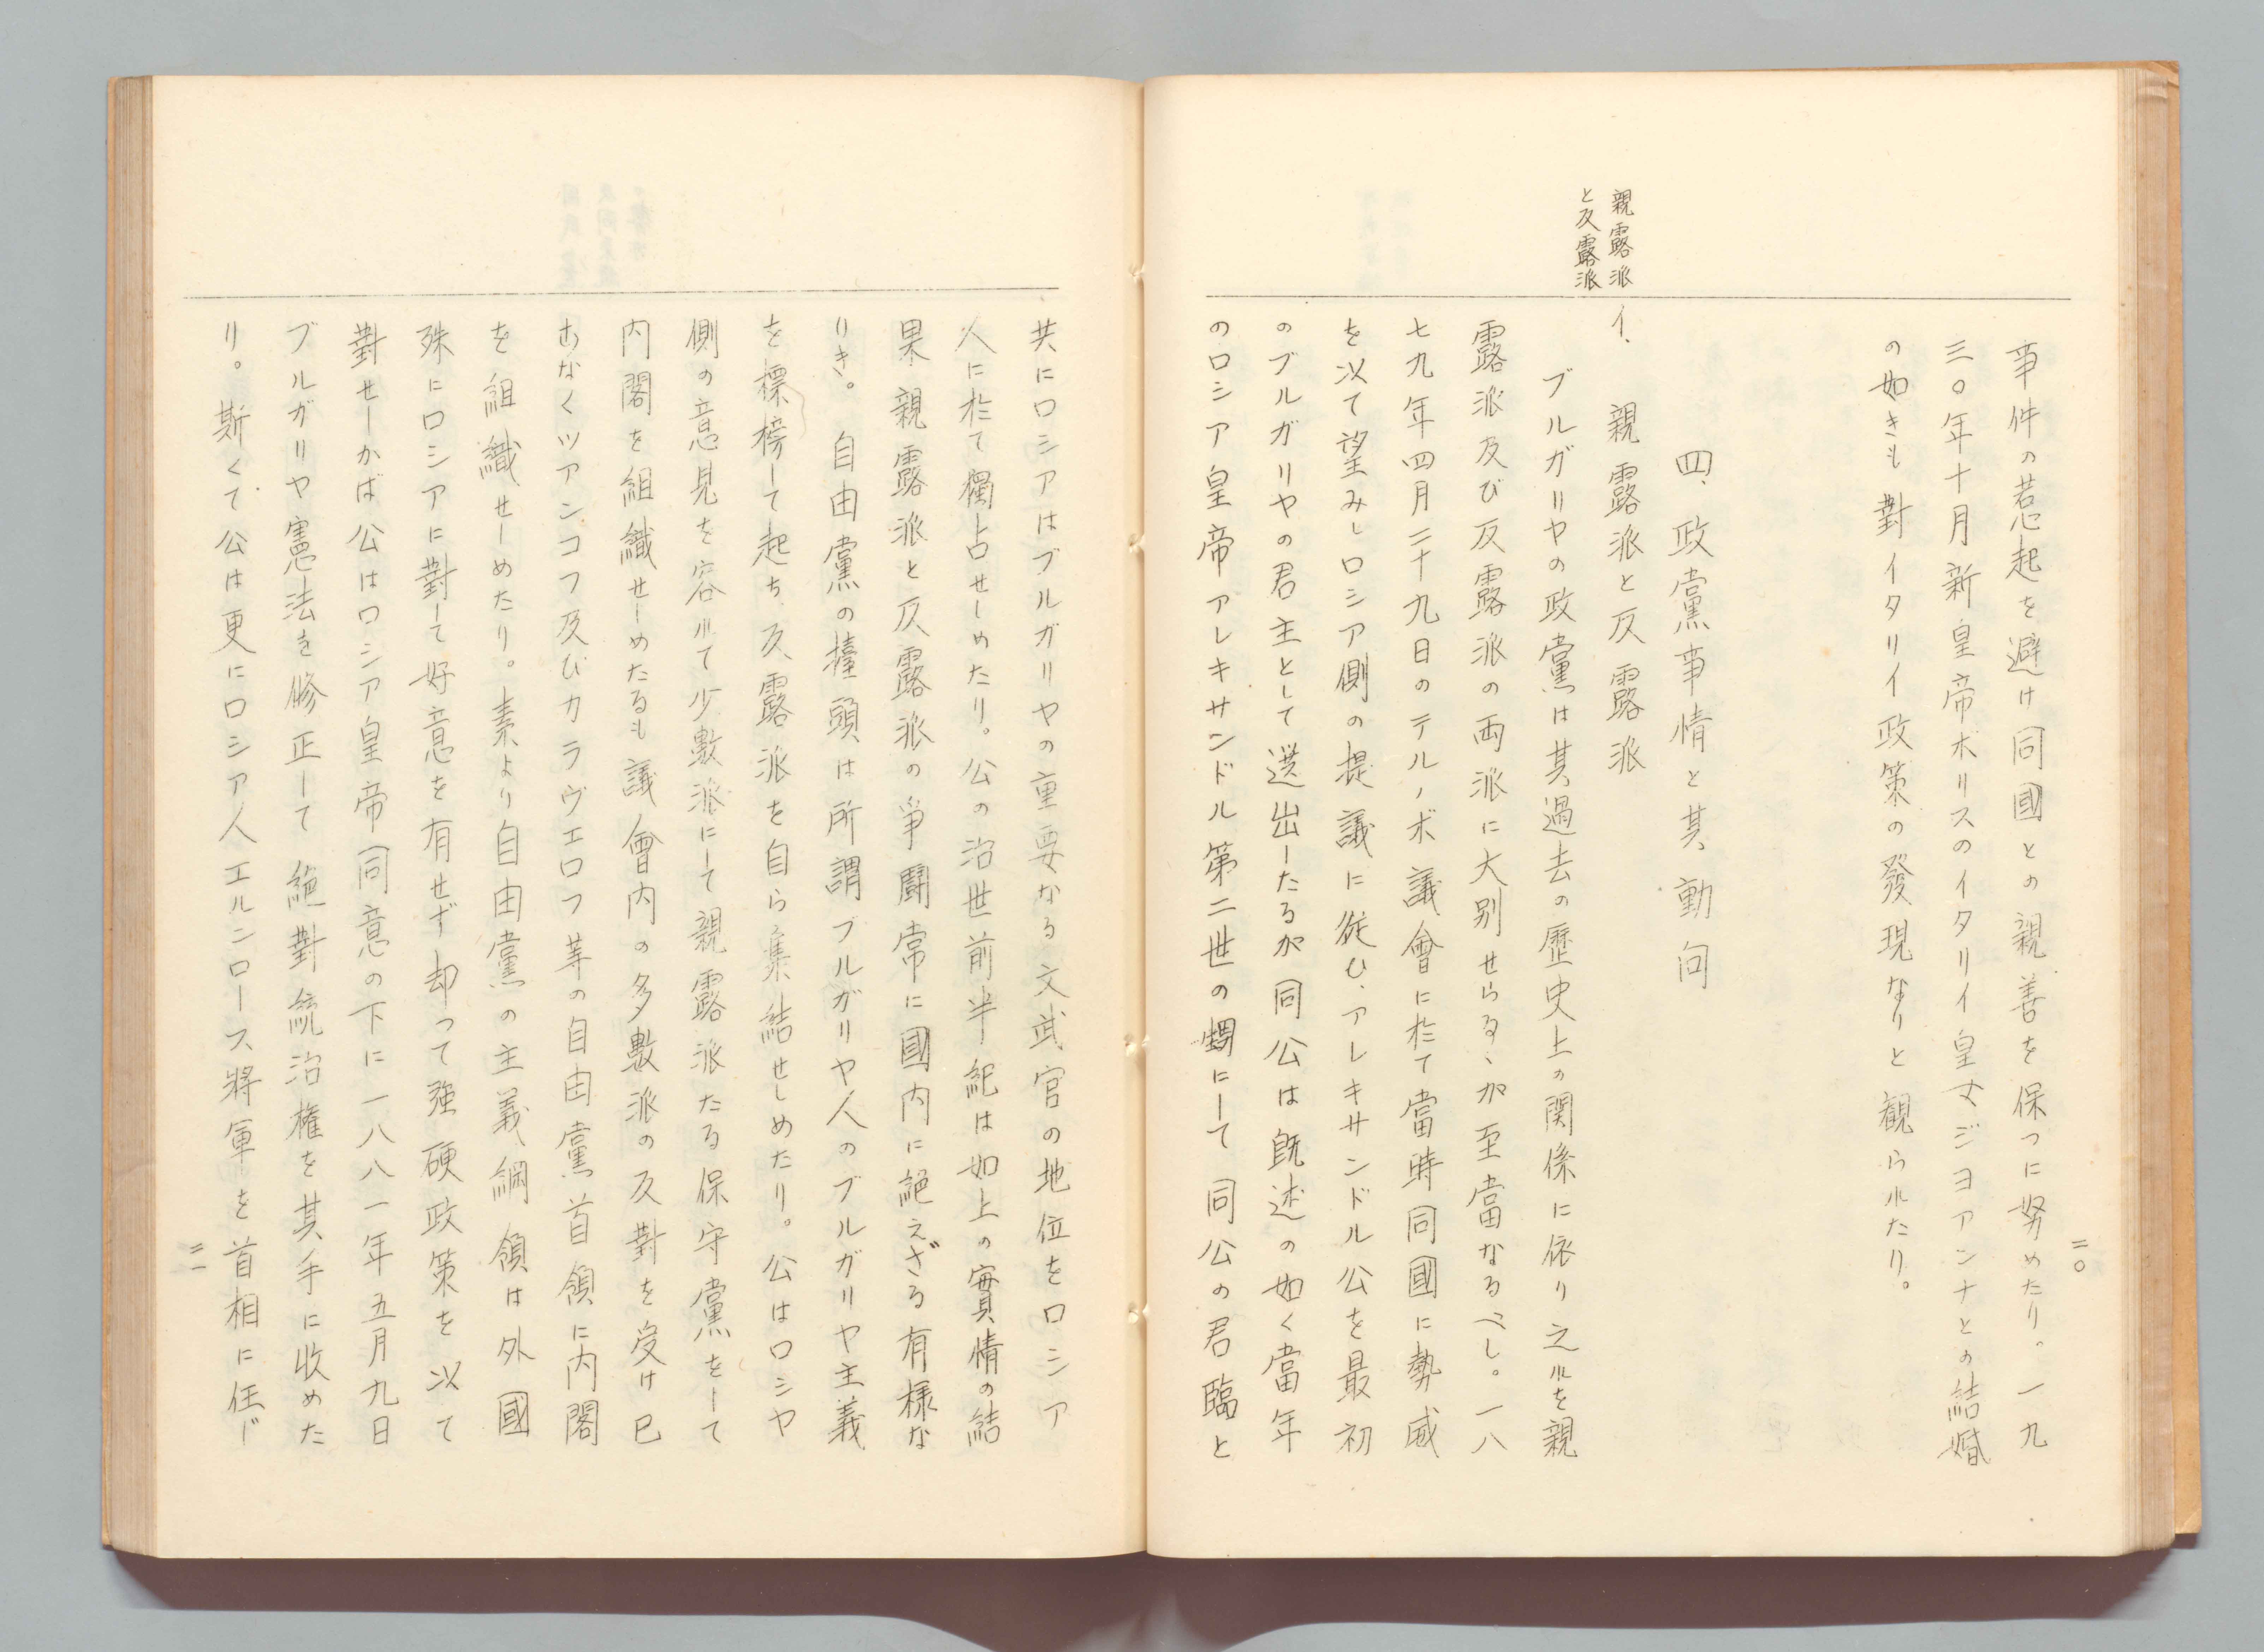 二〇
事件の惹起を避け同國との親善を保つに努めたり。一九
三〇年十月新皇帝ボリスのイタリイ皇女ジヨアンナとの結婚
の如きも對イタリイ政策の發現なりと観られたり。
四、政黨事情と其動向
親露派
と反露派
イ、親露派と反露派
ブルガリヤの政黨は其過去の歷史上の関係に依り之れを親
露派及び反露派の両派に大別せらるゝが至當なるべし。一八
七九年四月二十九日のテルノボ議會に於て當時同國に勢威
を以て望みしロシア側の提議に従ひ、アレキサンドル公を最初
のブルガリヤの君主として選出したるが同公は既述の如く當年
のロシア皇帝アレキサンドル第二世の甥にして同公の君臨と
共にロシアはブルガリヤの重要なる文武官の地位をロシア
人に於て獨占せしめたり。公の治世前半紀は如上の實情の結
果親露派と反露派の爭闘常に國内に絶えざる有様な
りき。自由黨の擡頭は所謂ブルガリヤ人のブルガリヤ主義
を標榜して起ち反露派を自ら集結せしめたり。公はロシヤ
側の意見を容れて少數派にして親露派たる保守黨をして
内閣を組織せしめたるも議會内の多數派の反對を受け已
むなくツアンコフ及びカラヴエロフ等の自由黨首領に内閣
を組織せしめたり。素より自由黨の主義綱領は外國
殊にロシアに對して好意を有せず却つて强硬政策を以て
對せしかば公はロシア皇帝同意の下に一八八一年五月九日
ブルガリヤ憲法を修正して絶對統治權を其手に收めた
り。斯くて公は更にロシア人エルンロース將軍を首相に任じ
二一